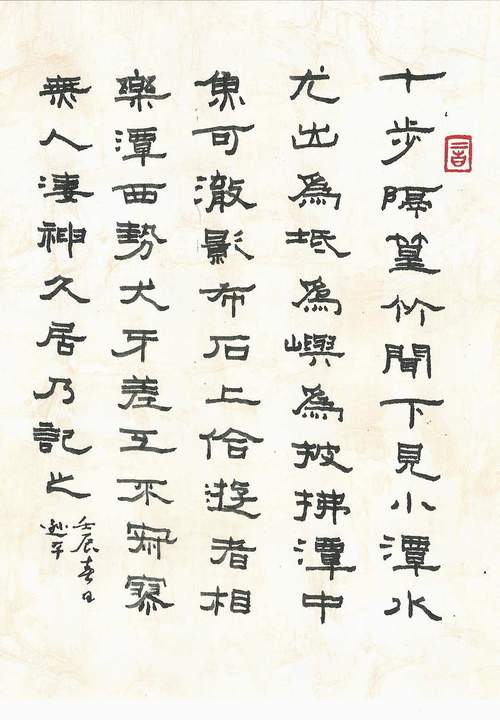 十步隔篁竹聞下見小潭水
尤出為坻為嶼為披拂潭中
魚可澈影布石上佁游者相
樂潭西勢犬牙差互不寂寥
無人淒神久居乃記之
壬辰春日